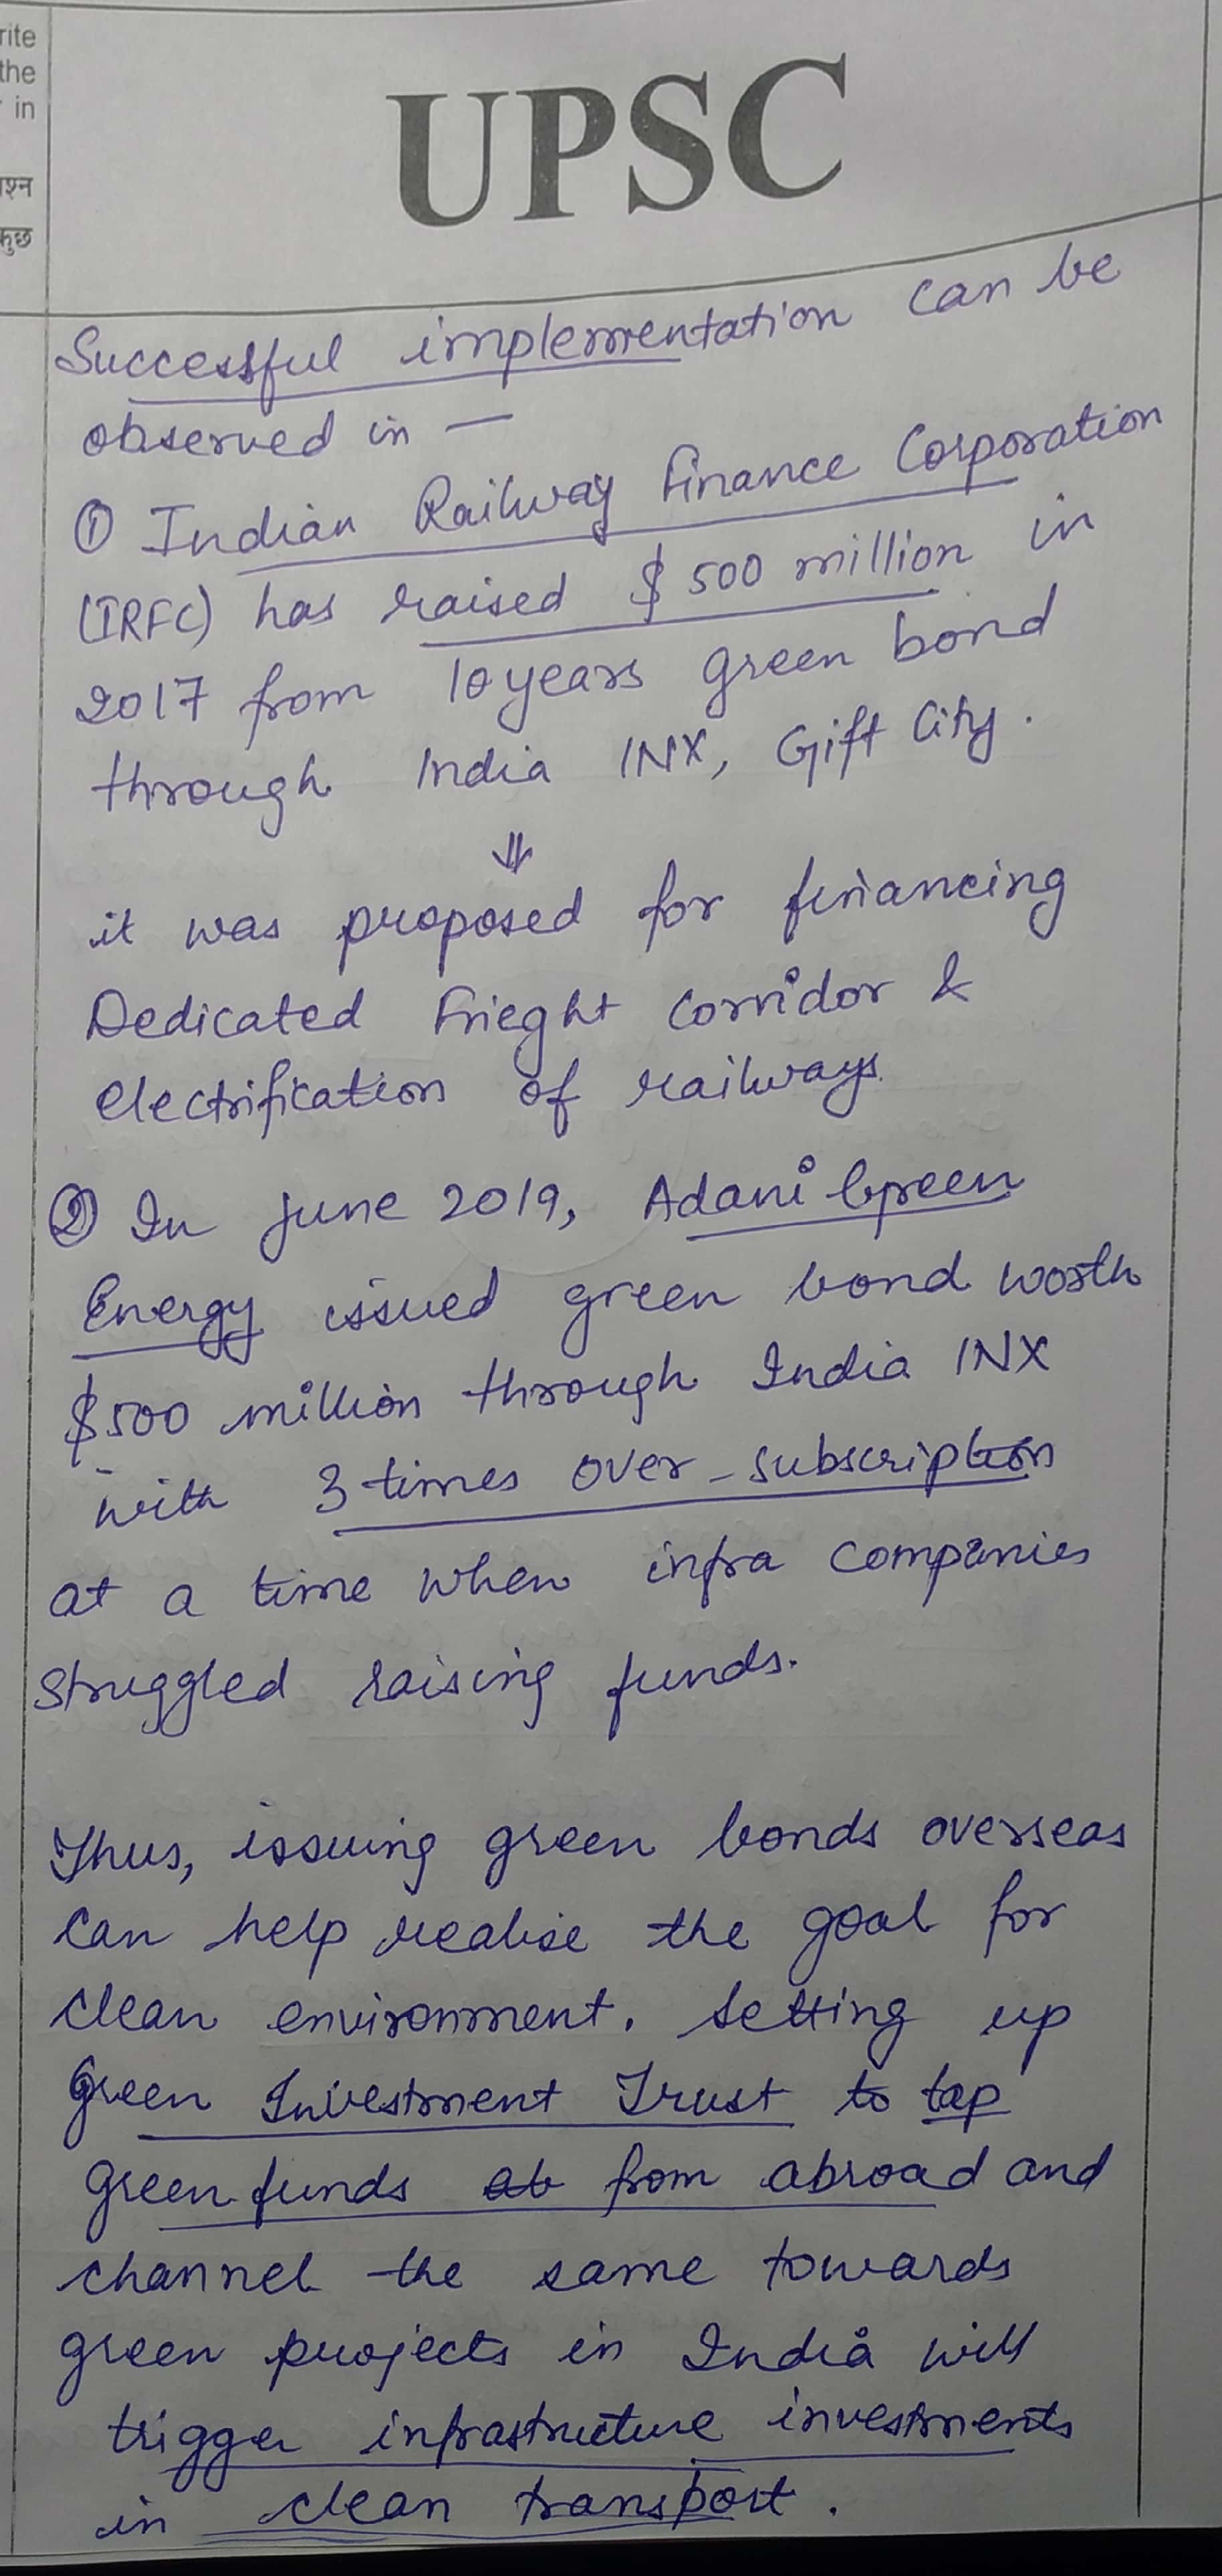 rite
the
in
श्न
कुछ
UPSC
Successful implementation can be
observed in —
① Indian Railway Finance Corporation
(IRFC) has raised $500 million in
2017 from 10 years green bond
through India INX, Gift City.
⇓
it was proposed for financing
Dedicated Frieght Corridor &
electrification of railways.
② In June 2019, Adani Green
Energy issued green bond worth
$500 million through India INX
with 3 times over-subscription
at a time when infra companies
struggled raising funds.
Thus, issuing green bonds overseas
can help realise the goal for
clean environment. Setting up
Green Investment Trust to tap
green funds ab from abroad and
channel the same towards
green projects in India will
trigger infrastructure investments
in clean transport.